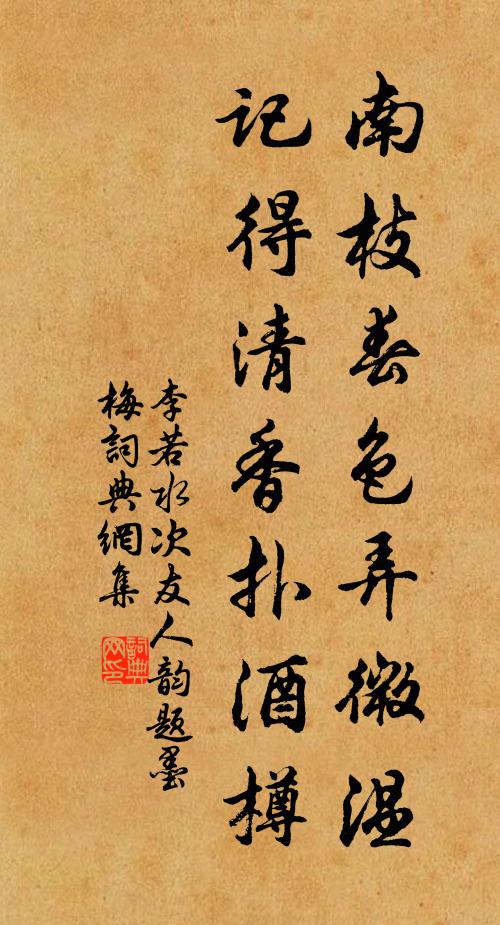 南枝春色弄微温
記得清香扑酒樽
李若水次友人韵題墨
梅詞典網集
詞典网印